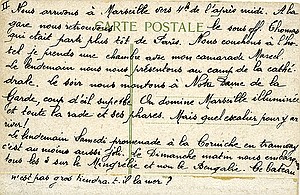 II Nous arrivons à Marseille vers 4h de l'après midi. A la
gare nous retrouvons le sous off. Thomas
CARTE POSTALE
qui était parti plus tôt de Paris. Nous couchons à l'hô
tel je prends une chambre avec mon camarade Marcel.
Le lendemain nous nous présentons au camp de la cathé
drale. Le soir nous montons à Notre Dame de la
Garde, coup d'œil superbe. On domine Marseille illuminée
et toute la rade et ses phares. Mais quel escalier pour y ar
river!
Le lendemain Samedi promenade à la Corniche en tramway
c'est au moins aussi joli. Le Dimanche matin nous embarq
tous les 3 sur le et non le Bengalie. Ce bateau
n'est pas gros tiendra-t-il la mer?